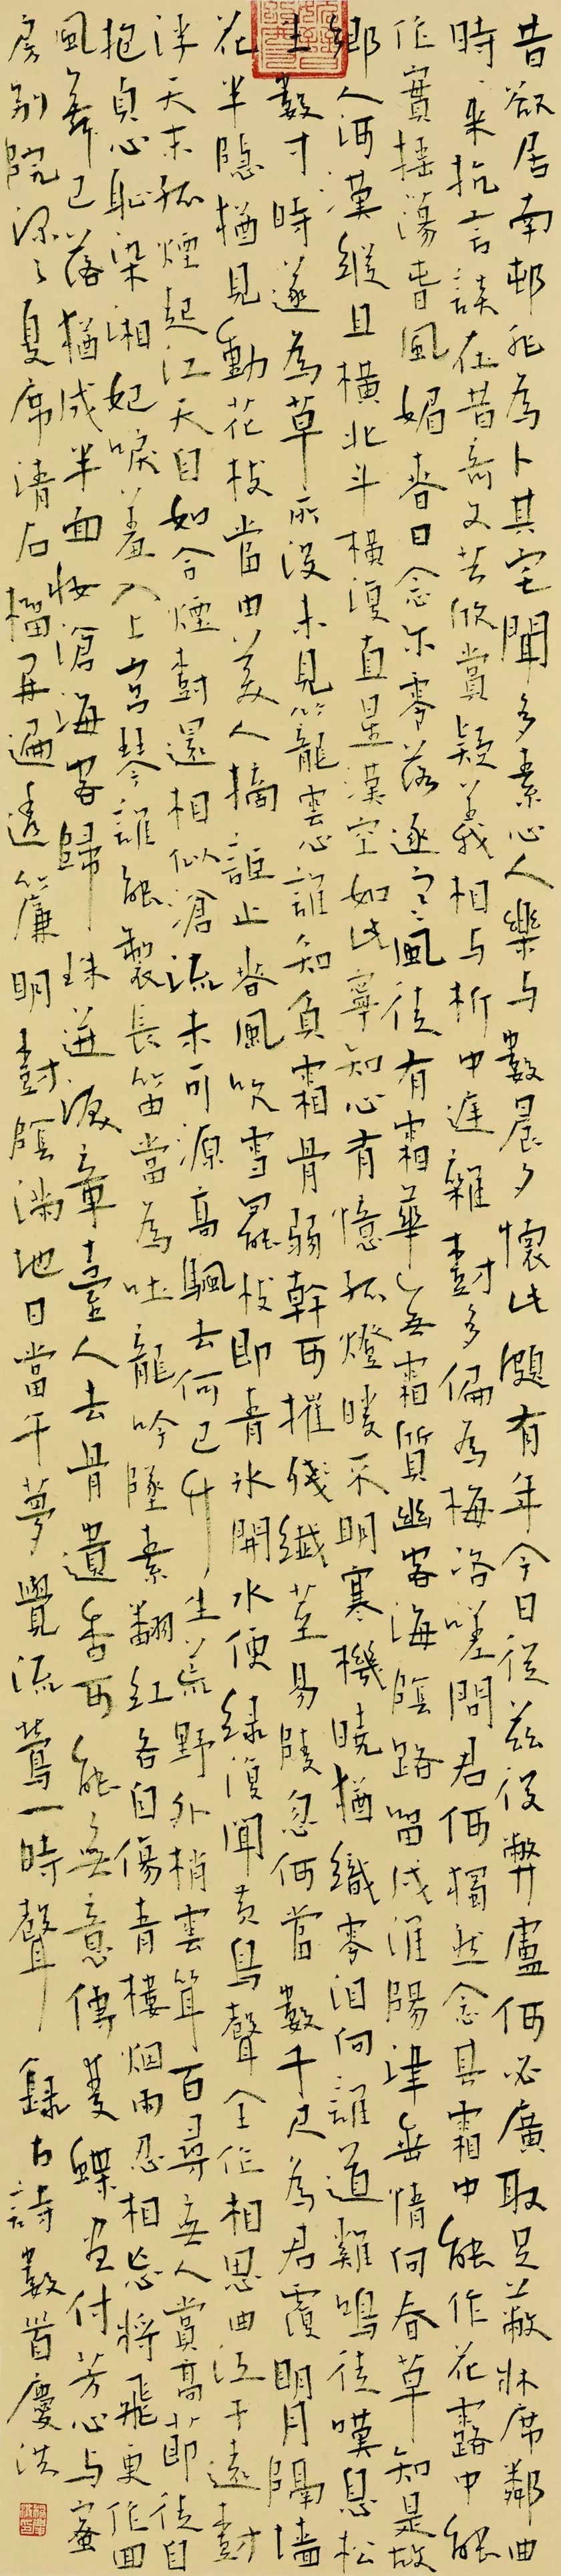 昔欲居南邨非為卜其宅聞多素心人樂與數晨夕懷此頗有年今日從茲役弊廬何必廣取足蔽牀席鄰曲
時時來抗言談在昔奇文共欣賞疑義相與析中庭雜樹多偏為梅咨嗟問君何獨然念其霜中能作花露中能
作實搖蕩春風媚春日念爾零落逐寒風徒有霜華無霜質幽客海陰路留戍淮陽津無情向春草知是故
鄉人河漢縱且橫北斗橫復直星漢空如此寧知心有憶孤燈曖不明寒機曉猶織零淚向誰道雞鳴徒嘆息松
生數寸時遂為草所沒未見籠雲心誰知負霜骨弱幹可摧殘纖莖易陵忽何當數千尺為君覆明月隔牆
花半隱猶見動花枝當由美人摘詎止春風吹雪罷枝即青冰開水便綠復聞黃鳥聲全作相思曲江干遠樹
浮天末孤煙起江天自如合煙樹還相似滄流未可源高颿去何已竹生荒野外梢雲聳百尋無人賞高節徒自
抱貞心恥染湘妃淚羞入上宮琴誰能製長笛當為吐龍吟墜素翻紅各自傷青樓烟雨忍相忘將飛更作回
風舞已落猶成半面妝滄海客歸珠迸淚章臺人去骨遺香可能無意傳雙蝶盡付芳心與蜜
房別院深深夏席清石榴開遍透簾明樹陰滿地日當午夢覺流鶯一時聲 錄古詩數首慶洪